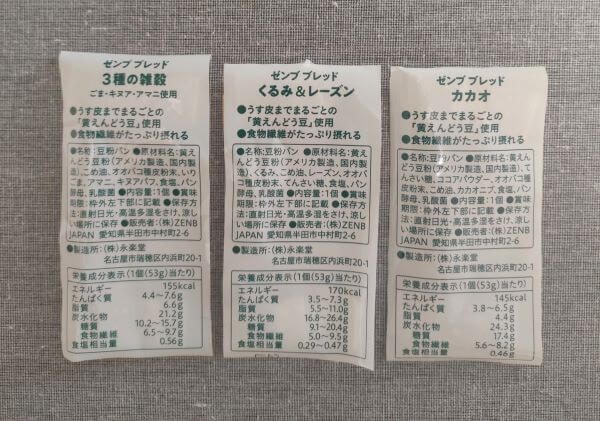 ゼンブ ブレッド
3種の雑穀
ごま・キヌア・アマニ使用
●うす皮までまるごとの
「黄えんどう豆」使用
●食物繊維がたっぷり摂れる
●名称:豆粉パン ●原材料名:黄え
んどう豆粉(アメリカ製造、国内製
造)、こめ油、オオバコ種皮粉末、いり
ごま、アマニ、キヌアパフ、食塩、パン
酵母、乳酸菌 ●内容量:1個 ●賞味
期限:枠外左下部に記載 ●保存方
法:直射日光・高温多湿をさけ、涼し
い場所に保存 ●販売者:(株)ZENB
JAPAN 愛知県半田市中村町2-6
●製造所:(株)永楽堂
名古屋市瑞穂区内浜町20-1
栄養成分表示(1個(53g)当たり)
エネルギー 155kcal
たんぱく質 4.4~7.6g
脂質 6.6g
炭水化物 21.2g
糖質 10.2~15.7g
食物繊維 6.5~9.7g
食塩相当量 0.56g
ゼンブ ブレッド
くるみ&レーズン
●うす皮までまるごとの
「黄えんどう豆」使用
●食物繊維がたっぷり摂れる
●名称:豆粉パン ●原材料名:黄え
んどう豆粉(アメリカ製造、国内製
造)、くるみ、こめ油、レーズン、オオバ
コ種皮粉末、てんさい糖、食塩、パン
酵母、乳酸菌 ●内容量:1個 ●賞味
期限:枠外左下部に記載 ●保存方
法:直射日光・高温多湿をさけ、涼し
い場所に保存 ●販売者:(株)ZENB
JAPAN 愛知県半田市中村町2-6
●製造所:(株)永楽堂
名古屋市瑞穂区内浜町20-1
栄養成分表示(1個(53g)当たり)
エネルギー 170kcal
たんぱく質 3.5~7.3g
脂質 5.5~11.0g
炭水化物 16.8~26.4g
糖質 9.1~20.4g
食物繊維 5.0~9.5g
食塩相当量 0.29~0.47g
ゼンブ ブレッド
カカオ
●うす皮までまるごとの
「黄えんどう豆」使用
●食物繊維がたっぷり摂れる
●名称:豆粉パン ●原材料名:黄え
んどう豆粉(アメリカ製造、国内製造)、て
んさい糖、ココアパウダー、オオバコ種
皮粉末、こめ油、カカオニブ、食塩、パン
酵母、乳酸菌 ●内容量:1個 ●賞味
期限:枠外左下部に記載 ●保存方
法:直射日光・高温多湿をさけ、涼し
い場所に保存 ●販売者:(株)ZENB
JAPAN 愛知県半田市中村町2-6
●製造所:(株)永楽堂
名古屋市瑞穂区内浜町20-1
栄養成分表示(1個(53g)当たり)
エネルギー 145kcal
たんぱく質 3.8~6.5g
脂質 4.4g
炭水化物 24.3g
糖質 17.4g
食物繊維 5.6~8.2g
食塩相当量 0.46g